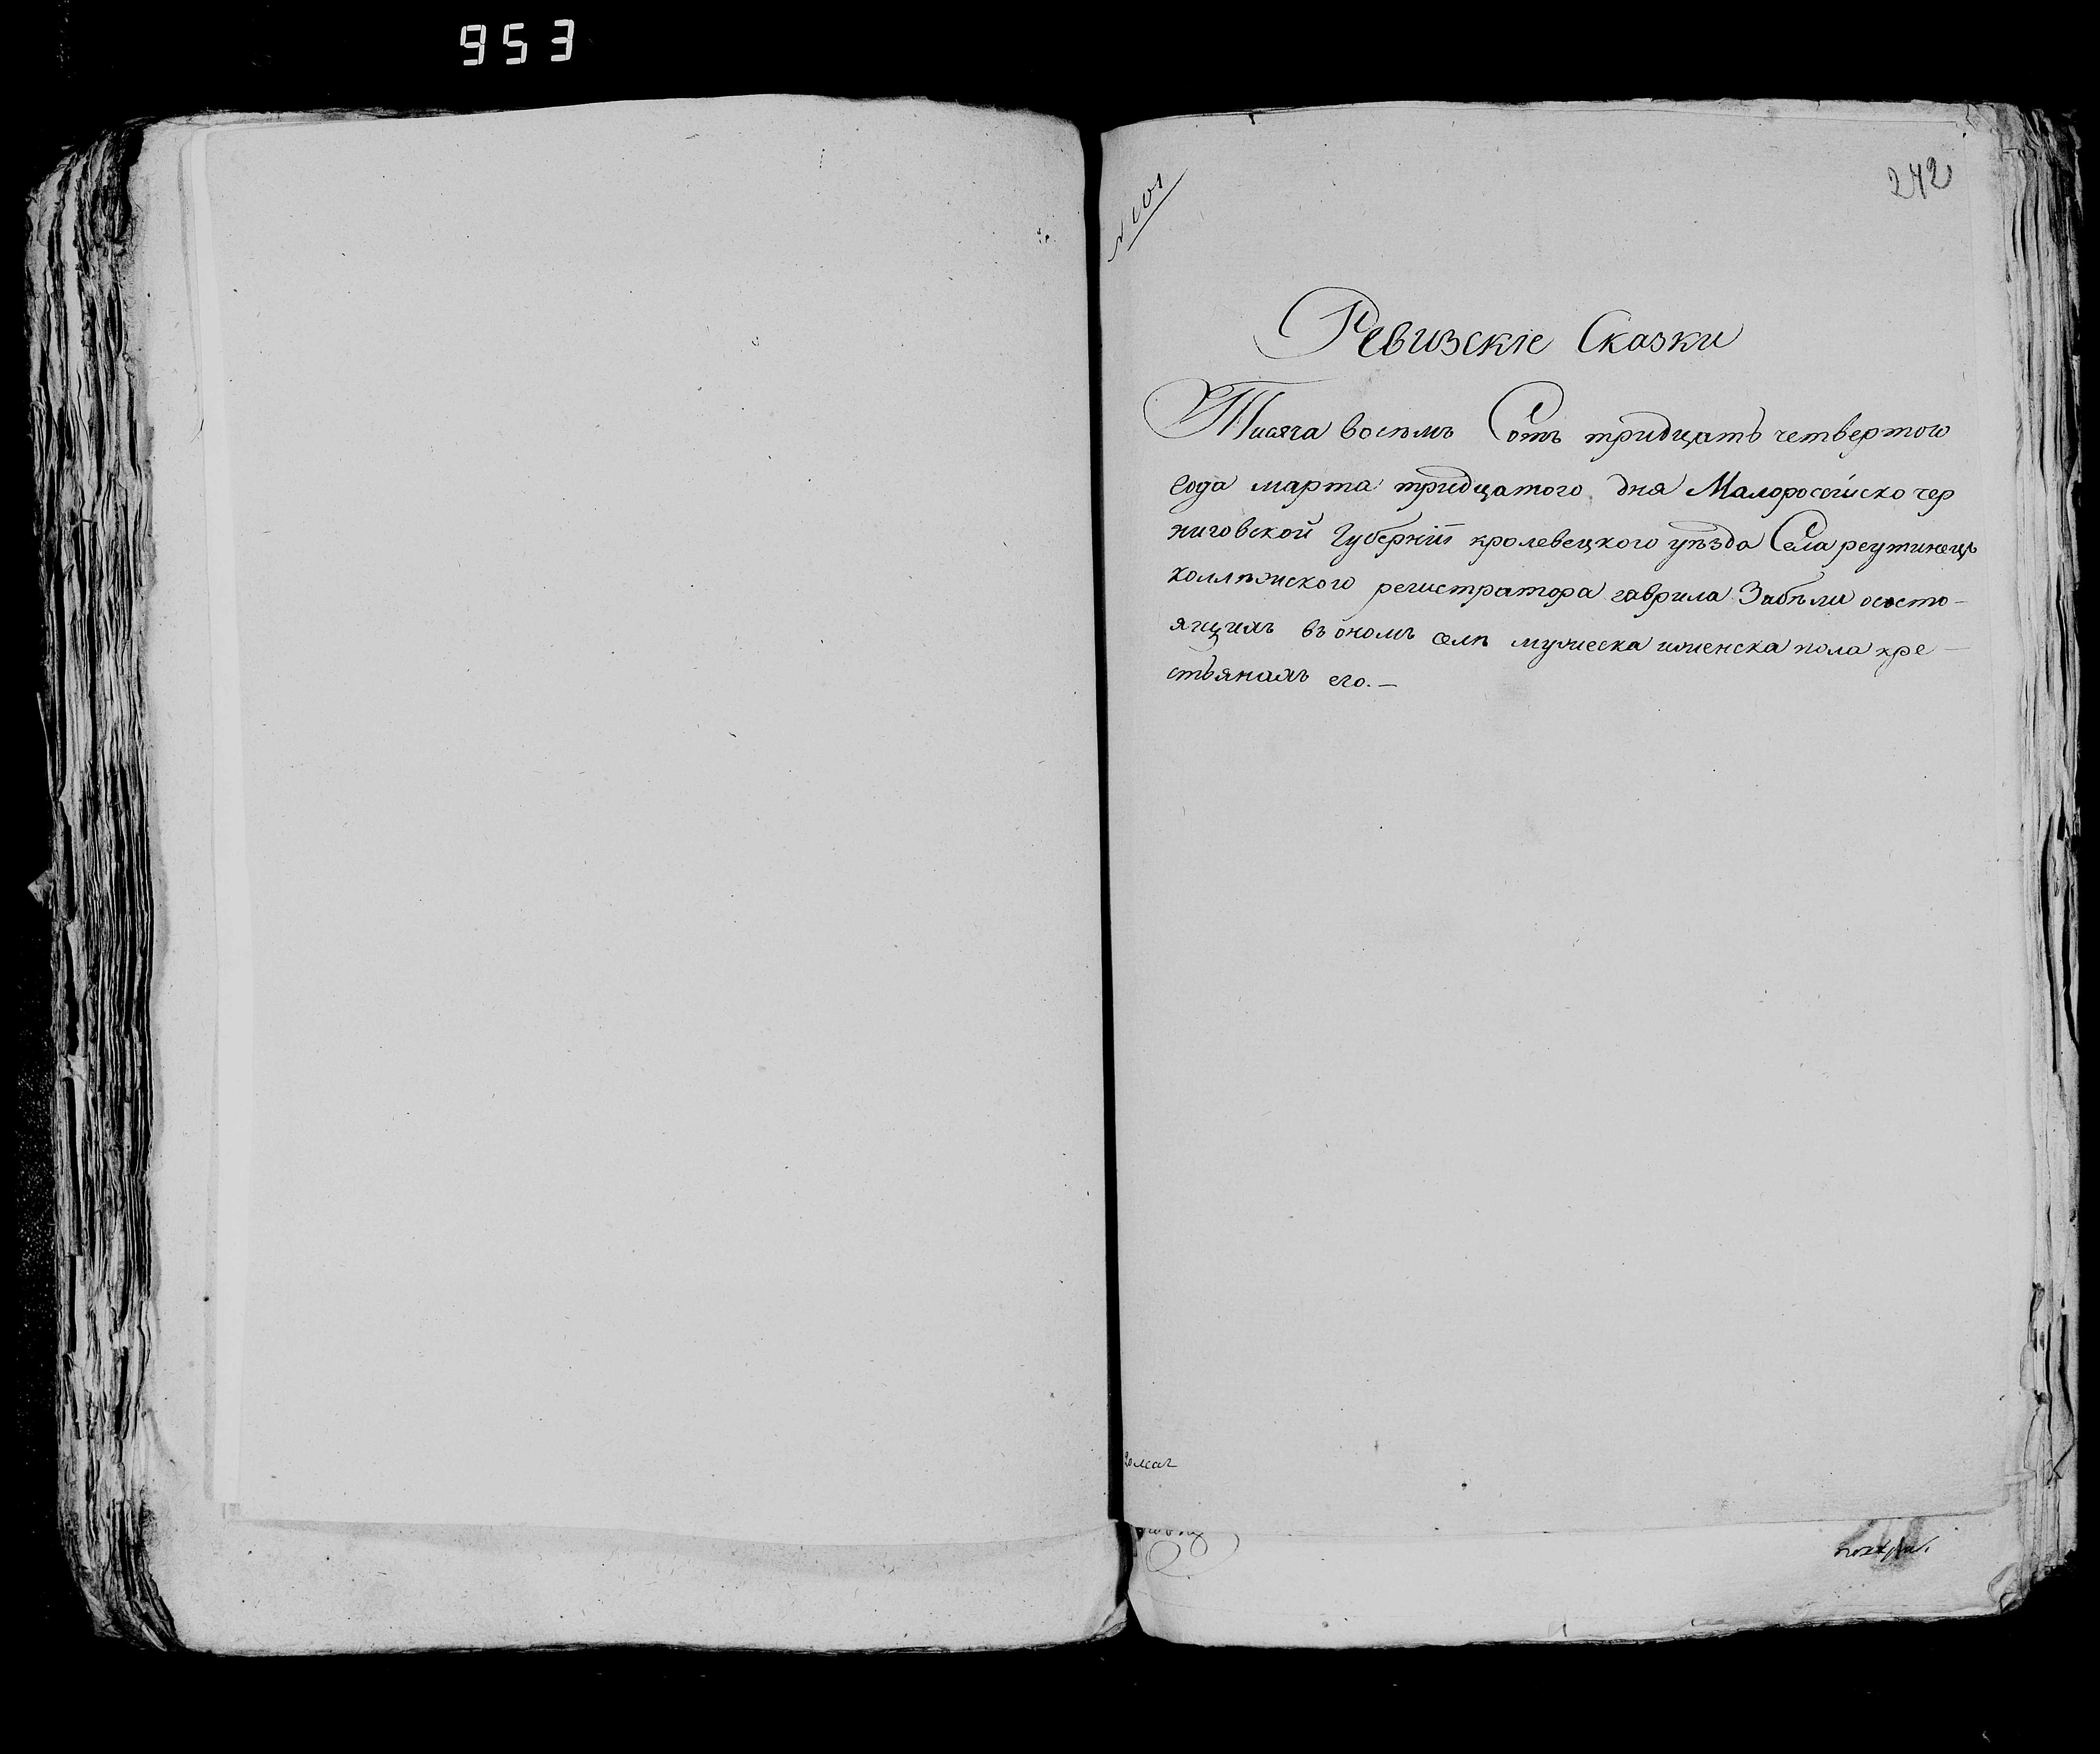 953
242
№ 101
Ревизскіе Сказки
Тисяча восѣмъ Сотъ тридцать четвертого
года марта тридцатого дня Малоросійско чер
ниговской Губерніи кролевецкого уѣзда Села реутинецъ
коллѣжского регистратора гаврила Забѣли ососто-
ящихъ въ ономъ селѣ мужеска иженска пола кре-
стьянахъ его.-